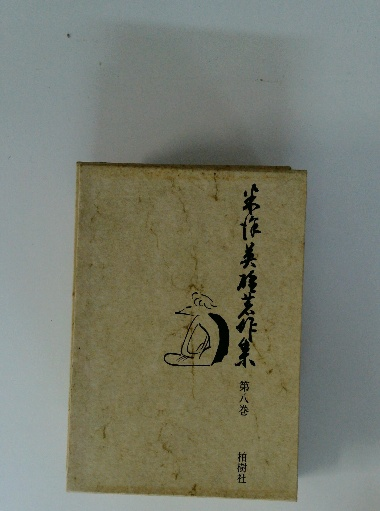 米沢英雄著作集
第八巻
柏樹社